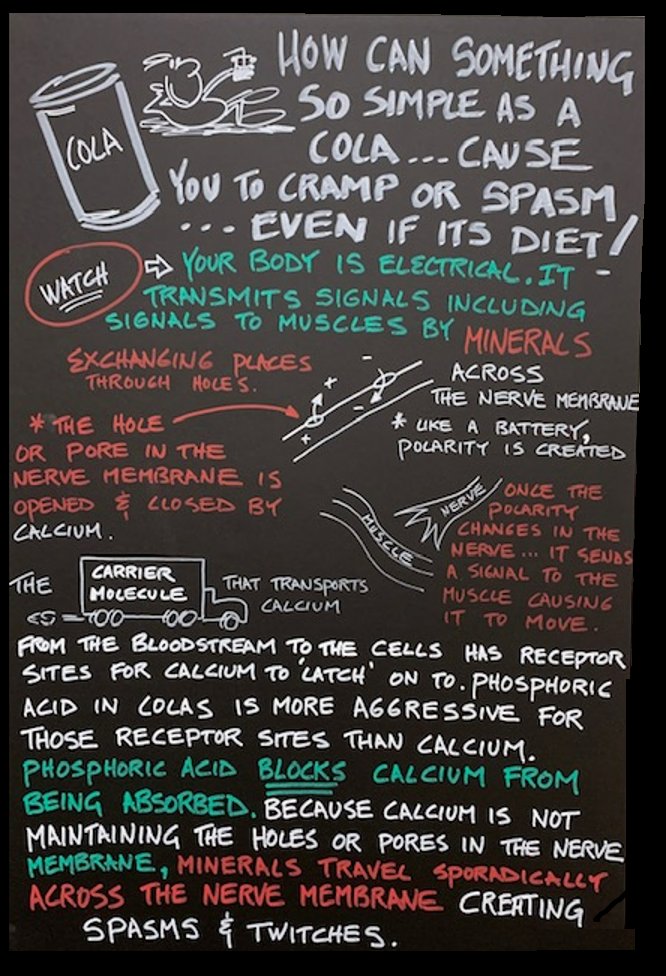 COLA
HOW CAN SOMETHING
SO SIMPLE AS A
COLA...CAUSE
YOU TO CRAMP OR SPASM
...EVEN IF ITS DIET!
WATCH
YOUR BODY IS ELECTRICAL. IT
TRANSMITS SIGNALS INCLUDING
SIGNALS TO MUSCLES BY MINERALS
EXCHANGING PLACES
THROUGH HOLE'S.
ACROSS
THE NERVE MEMBRANE
* LIKE A BATTERY,
POLARITY IS CREATED
- + - +
* THE HOLE
OR PORE IN THE
NERVE MEMBRANE IS
OPENED & CLOSED BY
CALCIUM.
MUSCLE
NERVE
ONCE THE
POLARITY
CHANGES IN THE
NERVE... IT SENDS
A SIGNAL TO THE
MUSCLE CAUSING
IT TO MOVE.
THE
CARRIER
MOLECULE
THAT TRANSPORTS
CALCIUM
FROM THE BLOODSTREAM TO THE CELLS HAS RECEPTOR
SITES FOR CALCIUM TO 'LATCH' ON TO. PHOSPHORIC
ACID IN COLAS IS MORE AGGRESSIVE FOR
THOSE RECEPTOR SITES THAN CALCIUM.
PHOSPHORIC ACID BLOCKS CALCIUM FROM
BEING ABSORBED. BECAUSE CALCIUM IS NOT
MAINTAINING THE HOLES OR PORES IN THE NERVE
MEMBRANE, MINERALS TRAVEL SPORADICALLY
ACROSS THE NERVE MEMBRANE CREATING
SPASMS & TWITCHES.